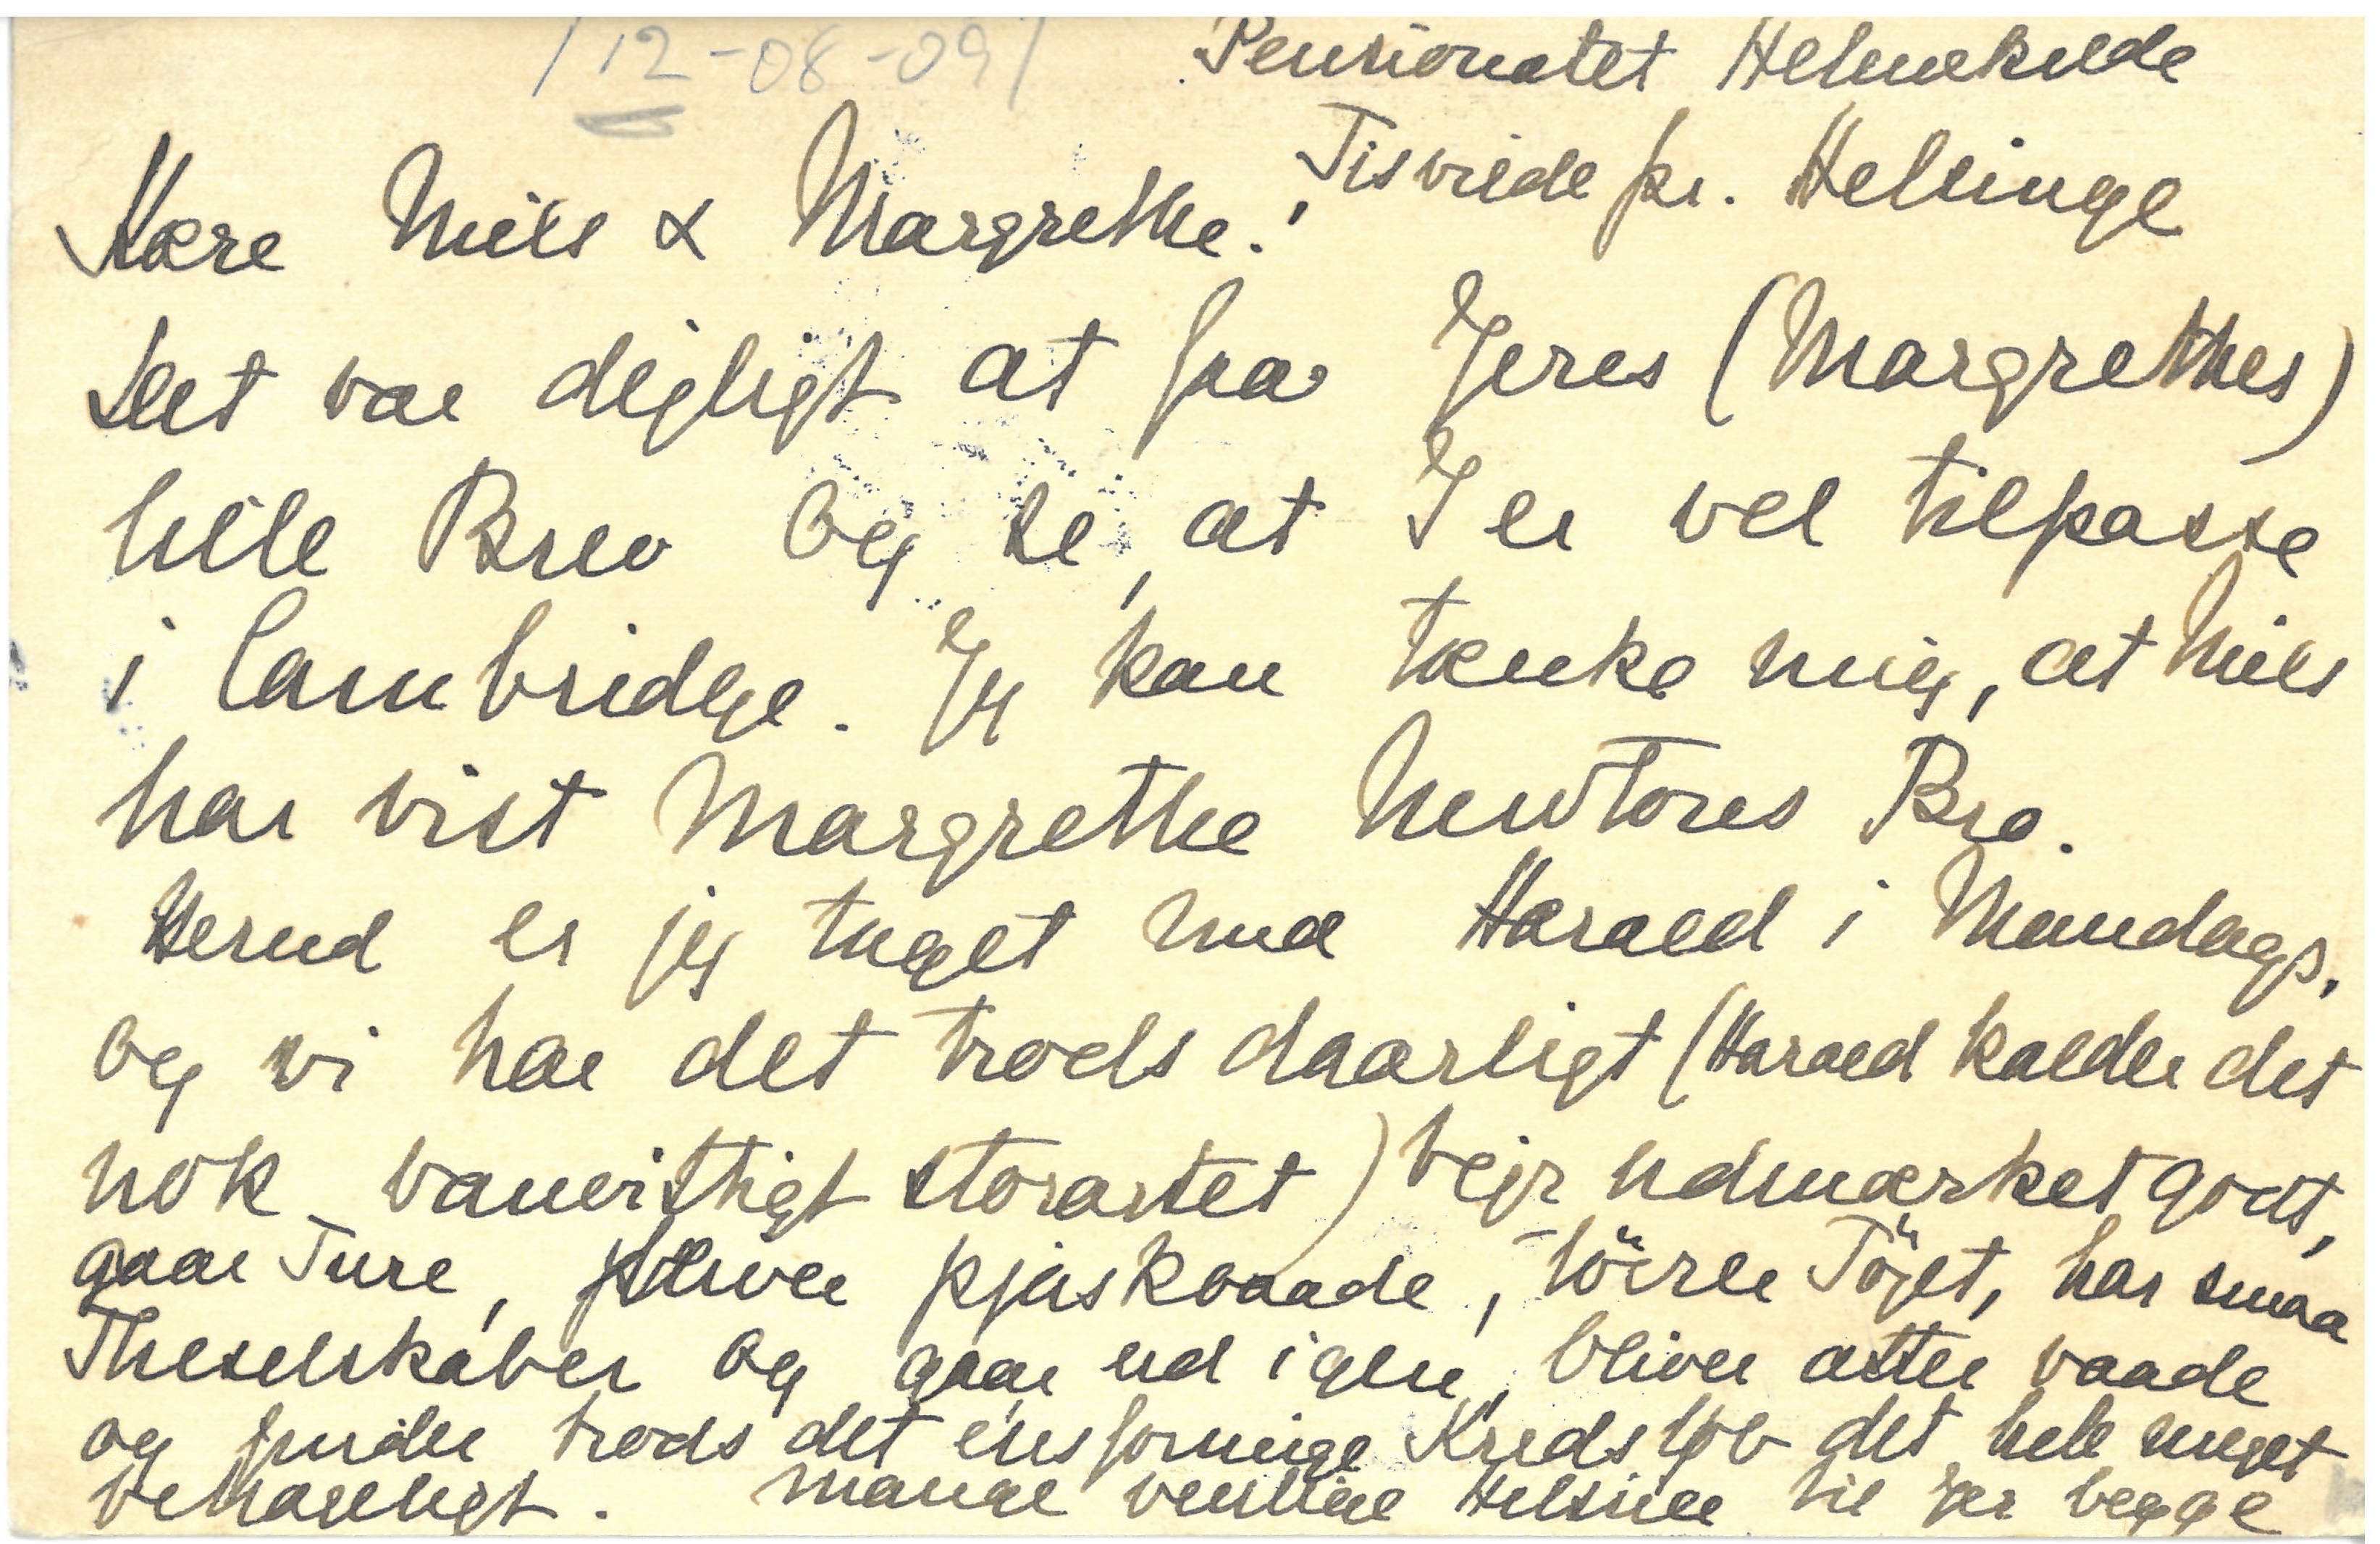 /12-08-09/
Pensionatet Helenekilde
Tisvilde pr. Helsinge
Kære Niels & Margrethe!
Det var dejligt at faa Jeres (Margrethes)
lille Brev og se, at I er vel tilpasse
i Cambridge. Jeg kan tænke mig, at Niels
har vist Margrethe Newtons Bro.
Herud er jeg taget med Harald i Mandags,
og vi har det trods daarligt (Harald kalder det
nok vanvittigt storartet) Vejr udmærket godt,
gaar Ture, bliver pjaskvaade, tørrer Tøjet, har smaa
Theselskaber og gaar ud igen, bliver atter vaade
og finder trods det ensformige Kredsløb det hele meget
behageligt. Mange venlige Hilsner til Jer begge